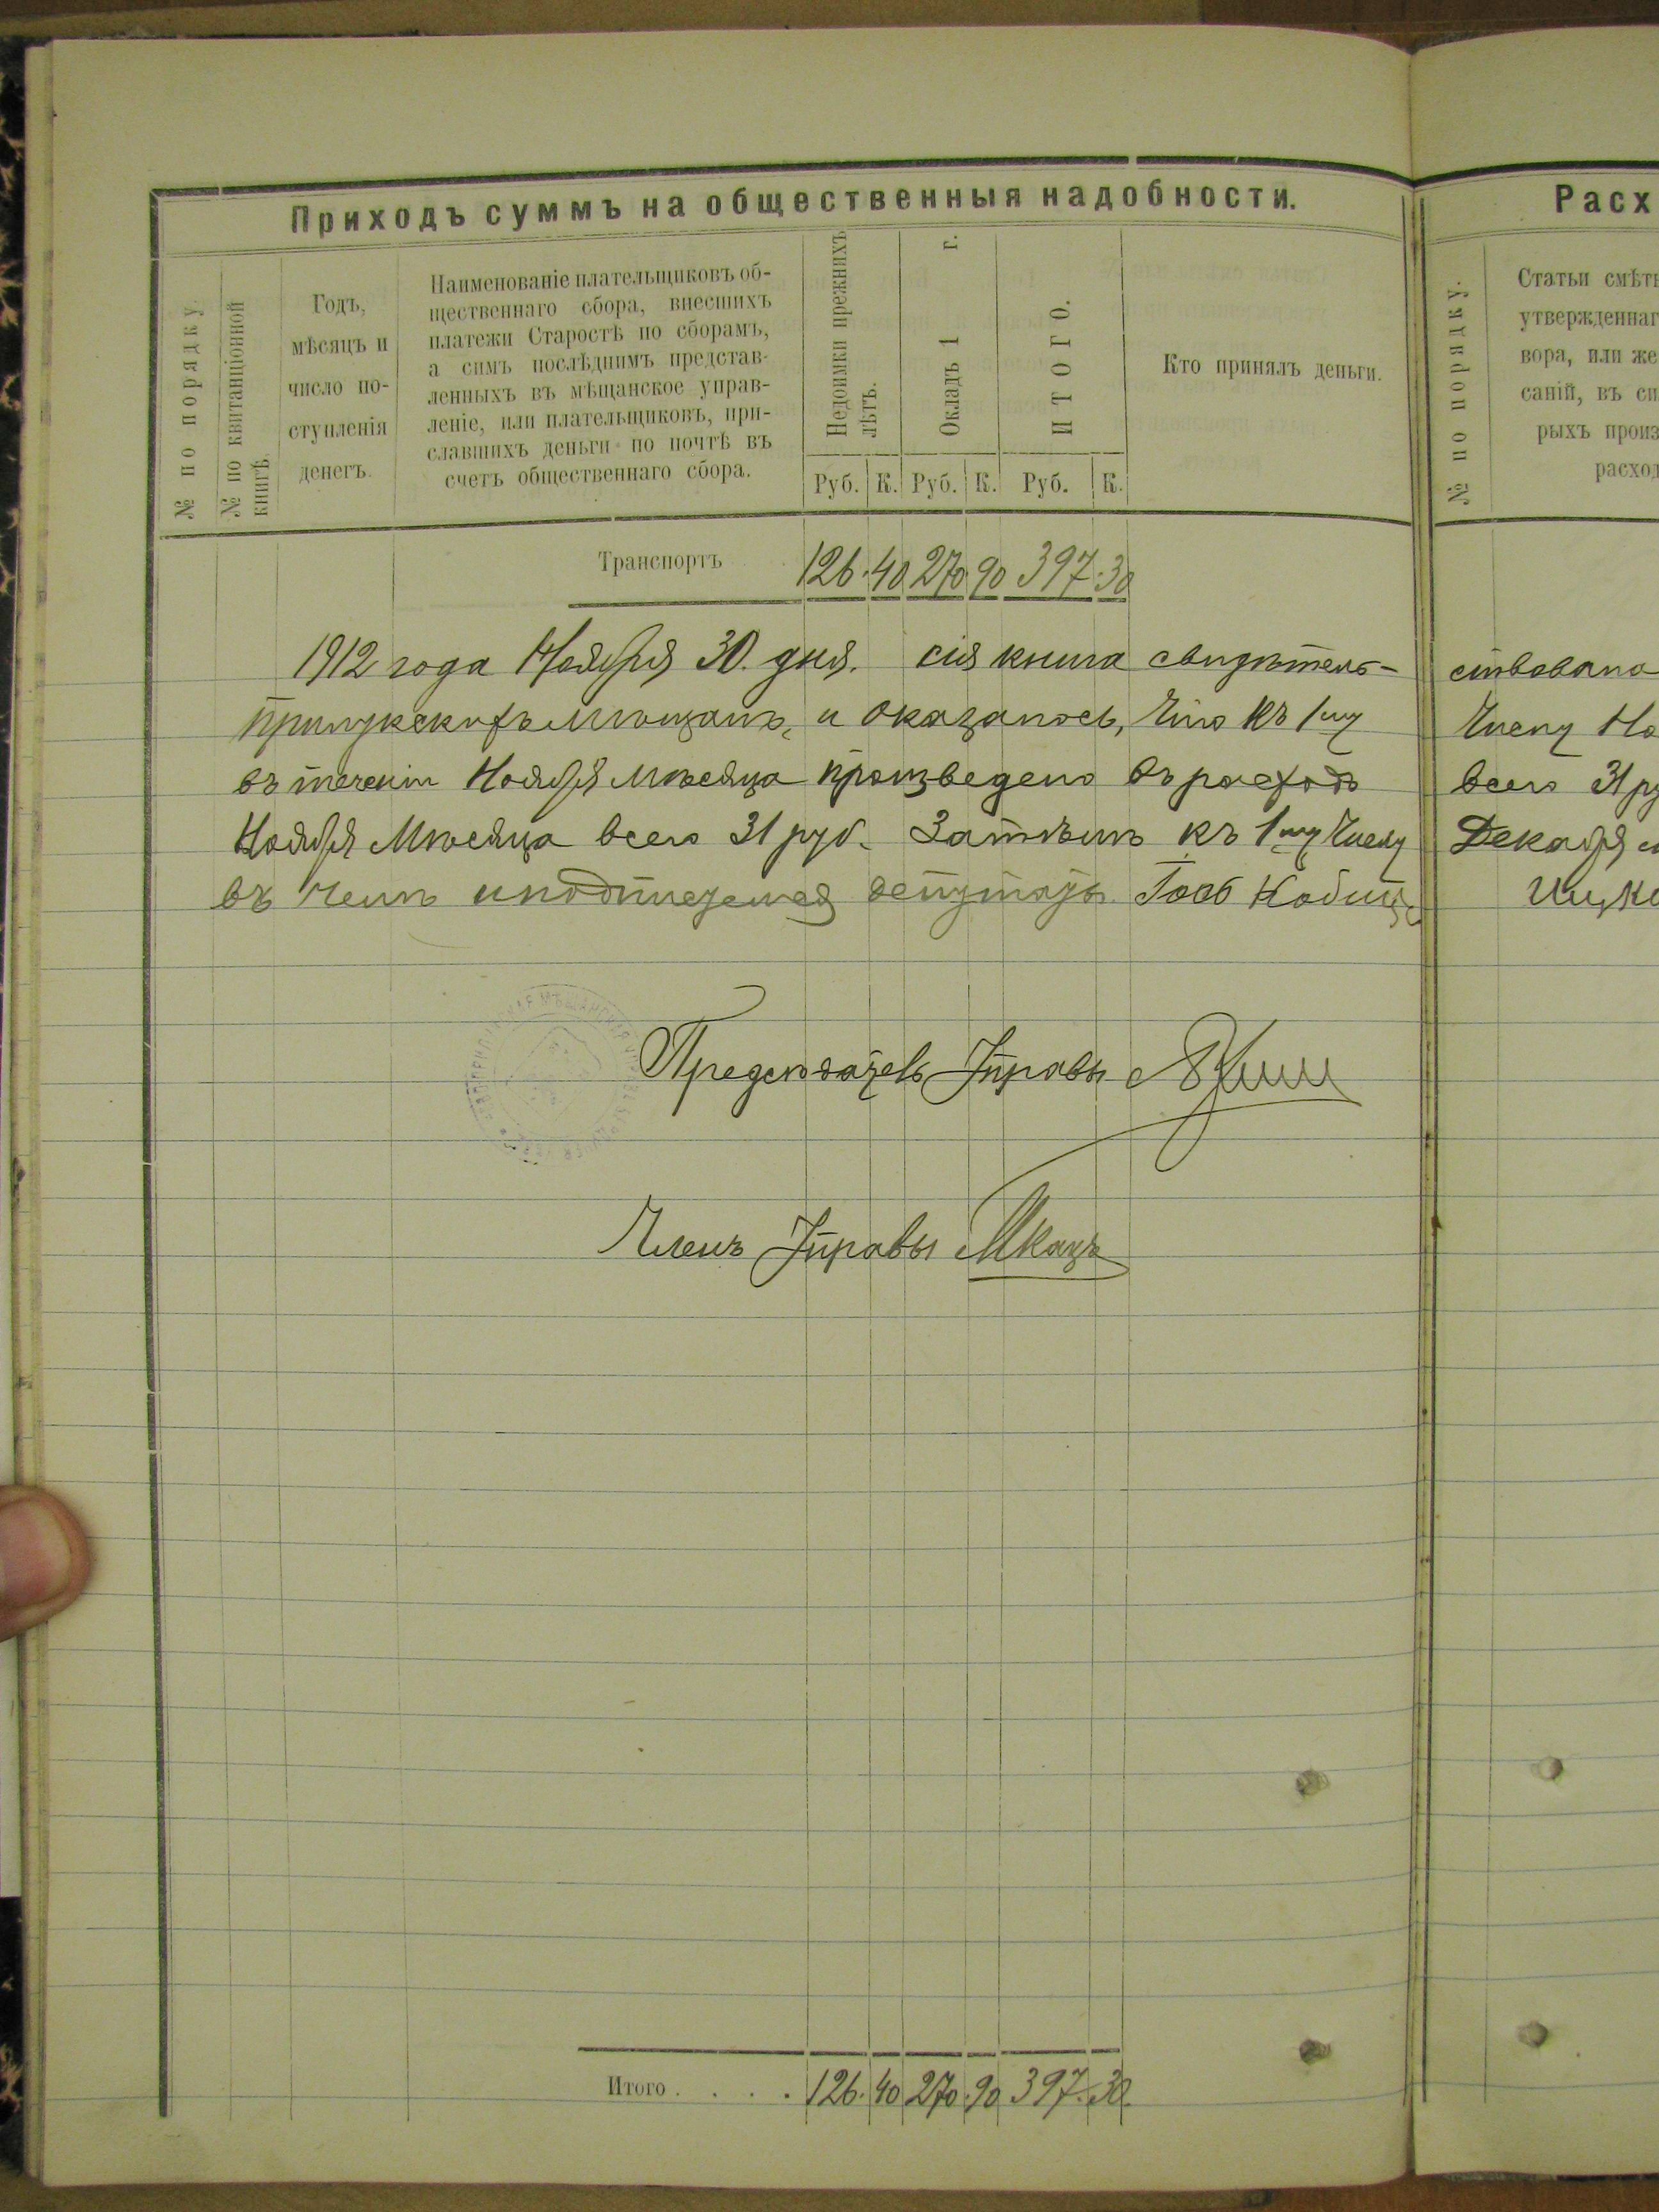 Приходъ суммъ на общественныя надобности.
№ по порядку.
№ по квитанціонной
книгѣ.
Годъ,
мѣсяцъ и
число по-
ступленія
денегъ.
Наименованіе плательщиковъ об-
щественнаго сбора, внесшихъ
платежи Старостѣ по сборамъ,
а симъ послѣднимъ представ-
ленныхъ въ мѣщанское управ-
леніе, или плательщиковъ, при-
славшихъ деньги по почтѣ въ
счетъ общественнаго сбора.
Недоимки прежнихъ
лѣтъ.
Окладъ 1 г.
ИТОГО.
Кто принялъ деньги.
Руб. К. Руб. К. Руб. К.
Транспортъ 126. 40 270. 90 397. 30
1912 года Ноября 30. дня. сія книга свидѣтель-
Прилукскихъ Мѣщанъ, и оказалось, что къ 1му
въ теченіи Ноября Мѣсяца произведено въ расходъ
Ноября Мѣсяца всего 31 руб. Затѣмъ къ 1му Числу
въ чемъ и подписуемся депутаты
Предсѣдатель Управы
Членъ Управы МКацъ
Итого . . . . 126. 40 270. 90 397. 30.
Расх
№ по порядку.
Статьи смѣт
утвержденнаг
вора, или же
саній, въ си
рыхъ произ
расход
ствована
Числу Но
всего 31 ру
Декабря м